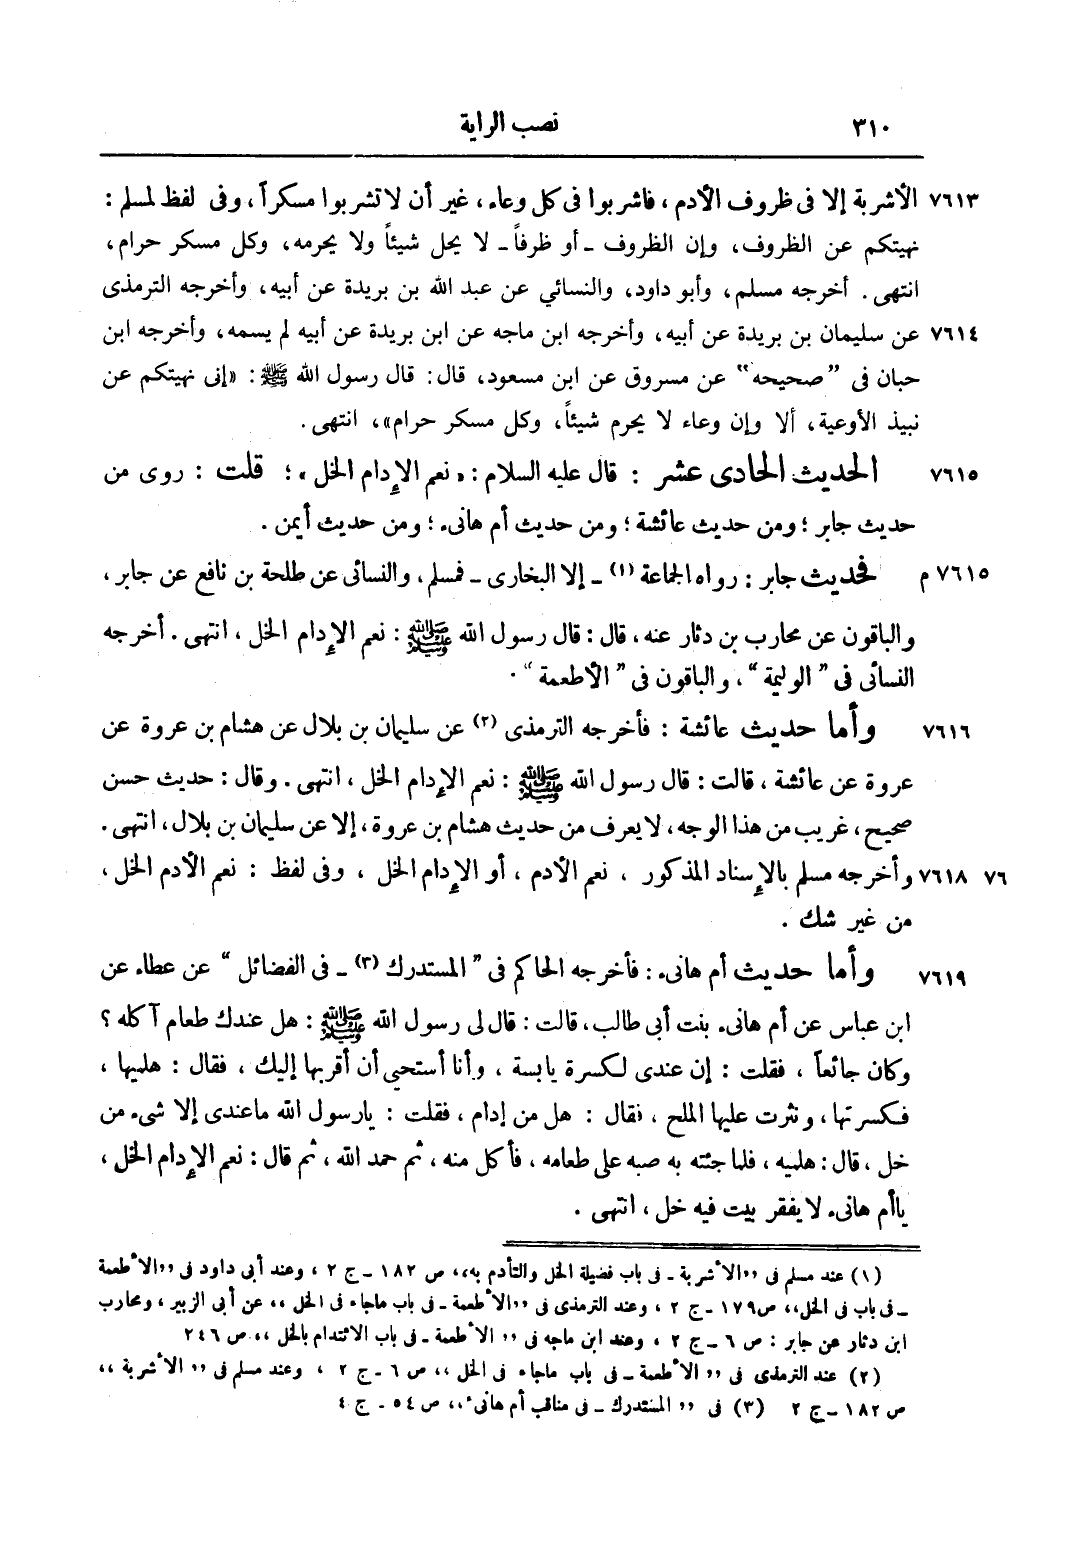 ٣١٠ نصب الراية
٧٦١٣ الأشربة إلا فى ظروف الأدم، فاشربوا فى كل وعاء، غير أن لا تشربوا مسكراً، وفى لفظ لمسلم:
نهيتكم عن الظروف، وإن الظروف ـ أو ظرفاً ـ لا يحل شيئاً ولا يحرمه، وكل مسكر حرام،
انتهى. أخرجه مسلم، وأبو داود، والنسائي عن عبد الله بن بريدة عن أبيه، وأخرجه الترمذى
٧٦١٤ عن سليمان بن بريدة عن أبيه، وأخرجه ابن ماجه عن ابن بريدة عن أبيه لم يسمه، وأخرجه ابن
حبان فى "صحيحه" عن مسروق عن ابن مسعود، قال: قال رسول الله ﷺ: «إنى نهيتكم عن
نبيذ الأوعية، ألا وإن وعاء لا يحرم شيئاً، وكل مسكر حرام»، انتهى.
٧٦١٥ الحديث الحادى عشر: قال عليه السلام: «نعم الإدام الخل»؛ قلت: روى من
حديث جابر؛ ومن حديث عائشة؛ ومن حديث أم هانىء؛ ومن حديث أيمن.
٧٦١٥ م فحديث جابر: رواه الجماعة (١) ـ إلا البخارى ـ فمسلم، والنسائى عن طلحة بن نافع عن جابر،
والباقون عن محارب بن دثار عنه، قال: قال رسول الله ﷺ: نعم الإدام الخل، انتهى. أخرجه
النسائى فى "الوليمة"، والباقون فى "الأطعمة".
٧٦١٦ وأما حديث عائشة: فأخرجه الترمذى (٢) عن سليمان بن بلال عن هشام بن عروة عن
عروة عن عائشة، قالت: قال رسول الله ﷺ: نعم الإدام الخل، انتهى. وقال: حديث حسن
صحيح، غريب من هذا الوجه، لا يعرف من حديث هشام بن عروة، إلا عن سليمان بن بلال، انتهى.
٧٦ ٧٦١٨ وأخرجه مسلم بالإسناد المذكور، نعم الأدم، أو الإدام الخل، وفى لفظ: نعم الأدم الخل،
من غير شك.
٧٦١٩ وأما حديث أم هانىء: فأخرجه الحاكم فى "المستدرك (٣) ـ فى الفضائل" عن عطاء عن
ابن عباس عن أم هانىء بنت أبى طالب، قالت: قال لى رسول الله ﷺ: هل عندك طعام آكله؟
وكان جائعاً، فقلت: إن عندى لكسرة يابسة، وأنا أستحيى أن أقربها إليك، فقال: هلميها،
فكسرتها، ونثرت عليها الملح، فقال: هل من إدام، فقلت: يارسول الله ماعندى إلا شىء من
خل، قال: هلميه، فلما جئته به صبه على طعامه، فأكل منه، ثم حمد الله، ثم قال: نعم الإدام الخل،
ياأم هانىء لا يفقر بيت فيه خل، انتهى.
(١) عند مسلم فى ,,الأشربة ـ فى باب فضيلة الخل والتأدم به،، ص ١٨٢ ـ ج ٢، وعند أبى داود فى ,,الأطعمة
ـ فى باب فى الخل،، ص ١٧٩ ـ ج ٢، وعند الترمذى فى ,,الأطعمة ـ فى باب ماجاء فى الخل،، عن أبى الزبير، ومحارب
ابن دثار عن جابر: ص ٦ ـ ج ٢، وعند ابن ماجه فى ,,الأطعمة ـ فى باب الائتدام بالخل،، ص ٢٤٦
(٢) عند الترمذى فى ,,الأطعمة ـ فى باب ماجاء فى الخل،، ص ٦ ـ ج ٢، وعند مسلم فى ,,الأشربة،،
ص ١٨٢ ـ ج ٢ (٣) فى ,,المستدرك ـ فى مناقب أم هانىء،، ص ٥٤ ـ ج ٤